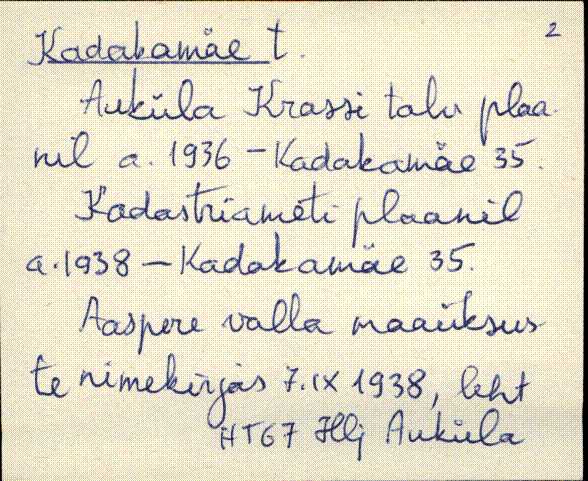 2
Kadakamäe t.
Auküla Krassi talu plaa-
nil a. 1936 - Kadakamäe 35.
Kadastriameti plaanil
a. 1938 - Kadakamäe 35.
Aaspere valla maaüksus-
te nimekirjas 7.IX 1938, leht
HT67 Hlj Auküla